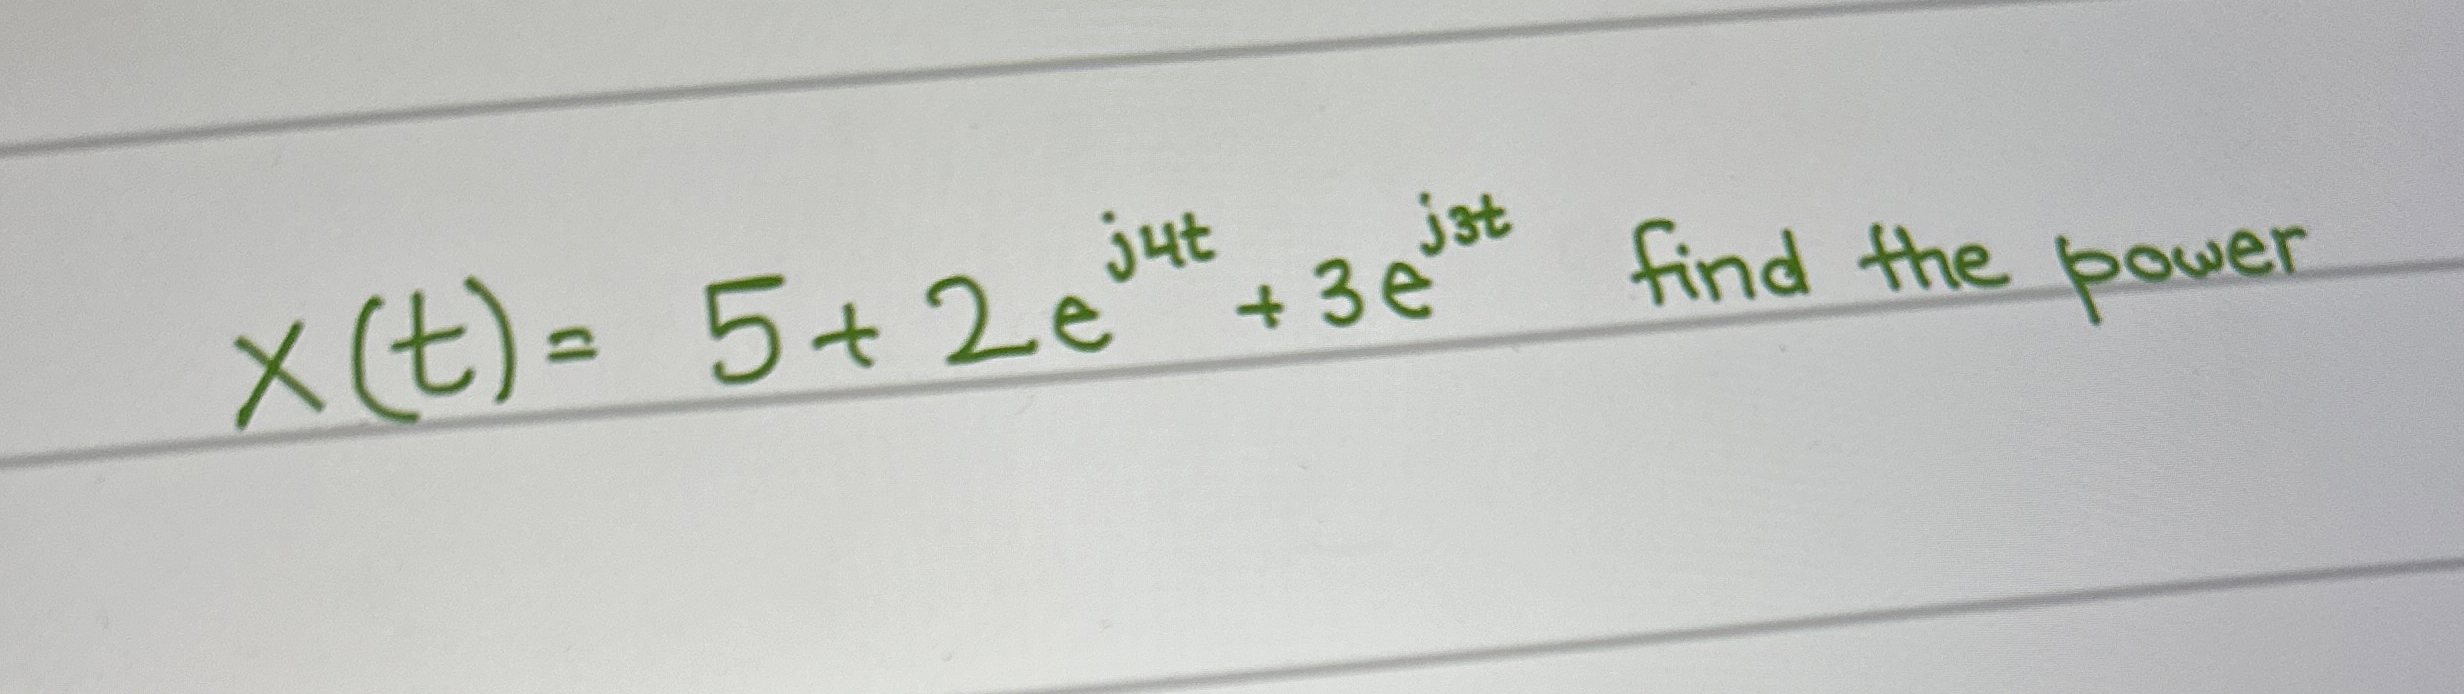 x(t) = 5 + 2e^{j4t} + 3e^{j3t} find the power